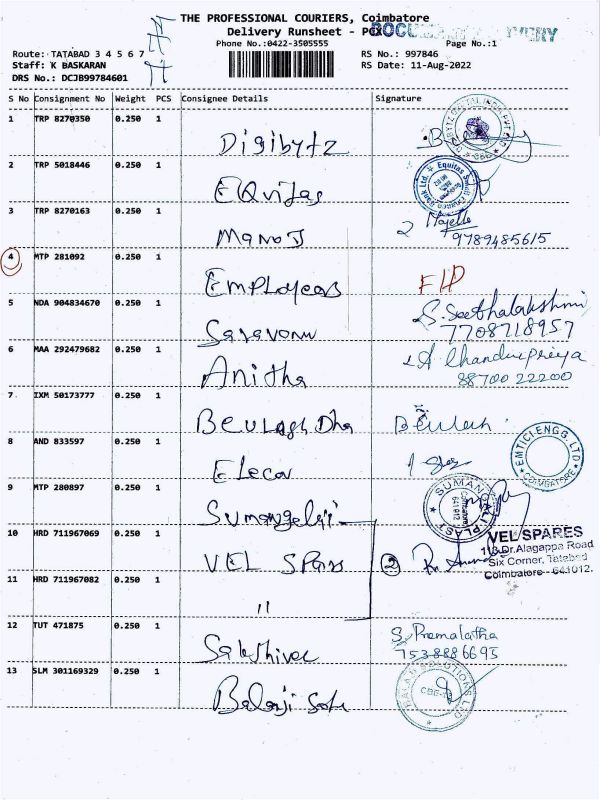 THE PROFESSIONAL COURIERS, Coimbatore
Delivery Runsheet - PCX
Phone No.:0422-3505555
Page No.:1
Route: TATABAD 3 4 5 6 7
Staff: K BASKARAN
DRS No.: DCJB99784601
RS No.: 997846
RS Date: 11-Aug-2022
S No Consignment No Weight PCS Consignee Details Signature
1 TRP 8270350 0.250 1 Digibytz
2 TRP 5018446 0.250 1 EQuitas
3 TRP 8270163 0.250 1 Manoj 2
9789485615
4 MTP 281092 0.250 1 Employees
5 NDA 904834670 0.250 1 Saravonu S. Seethalakshmi
7708718957
6 MAA 292479682 0.250 1 Anitha A Chandrapreiya
88700 22200
7 IXM 50173777 0.250 1 Beulagh Dha Beulah
8 AND 833597 0.250 1 Elecon
EMTICI ENGG. LTD
COIMBATORE
9 MTP 280897 0.250 1 Sumangali
SUMANGALI PLAST
Coimbatore
641 012
10 HRD 711967069 0.250 1 VEL SPars 2
VEL SPARES
113 Dr.Alagappa Road
Six Corner, Tatabad
Coimbatore - 641012.
11 HRD 711967082 0.250 1 "
12 TUT 471875 0.250 1 Sakthivel S. Premalatha
7538886695
13 SLM 301169329 0.250 1 Balaji Solu
BALAJI SOLUTIONS LTD